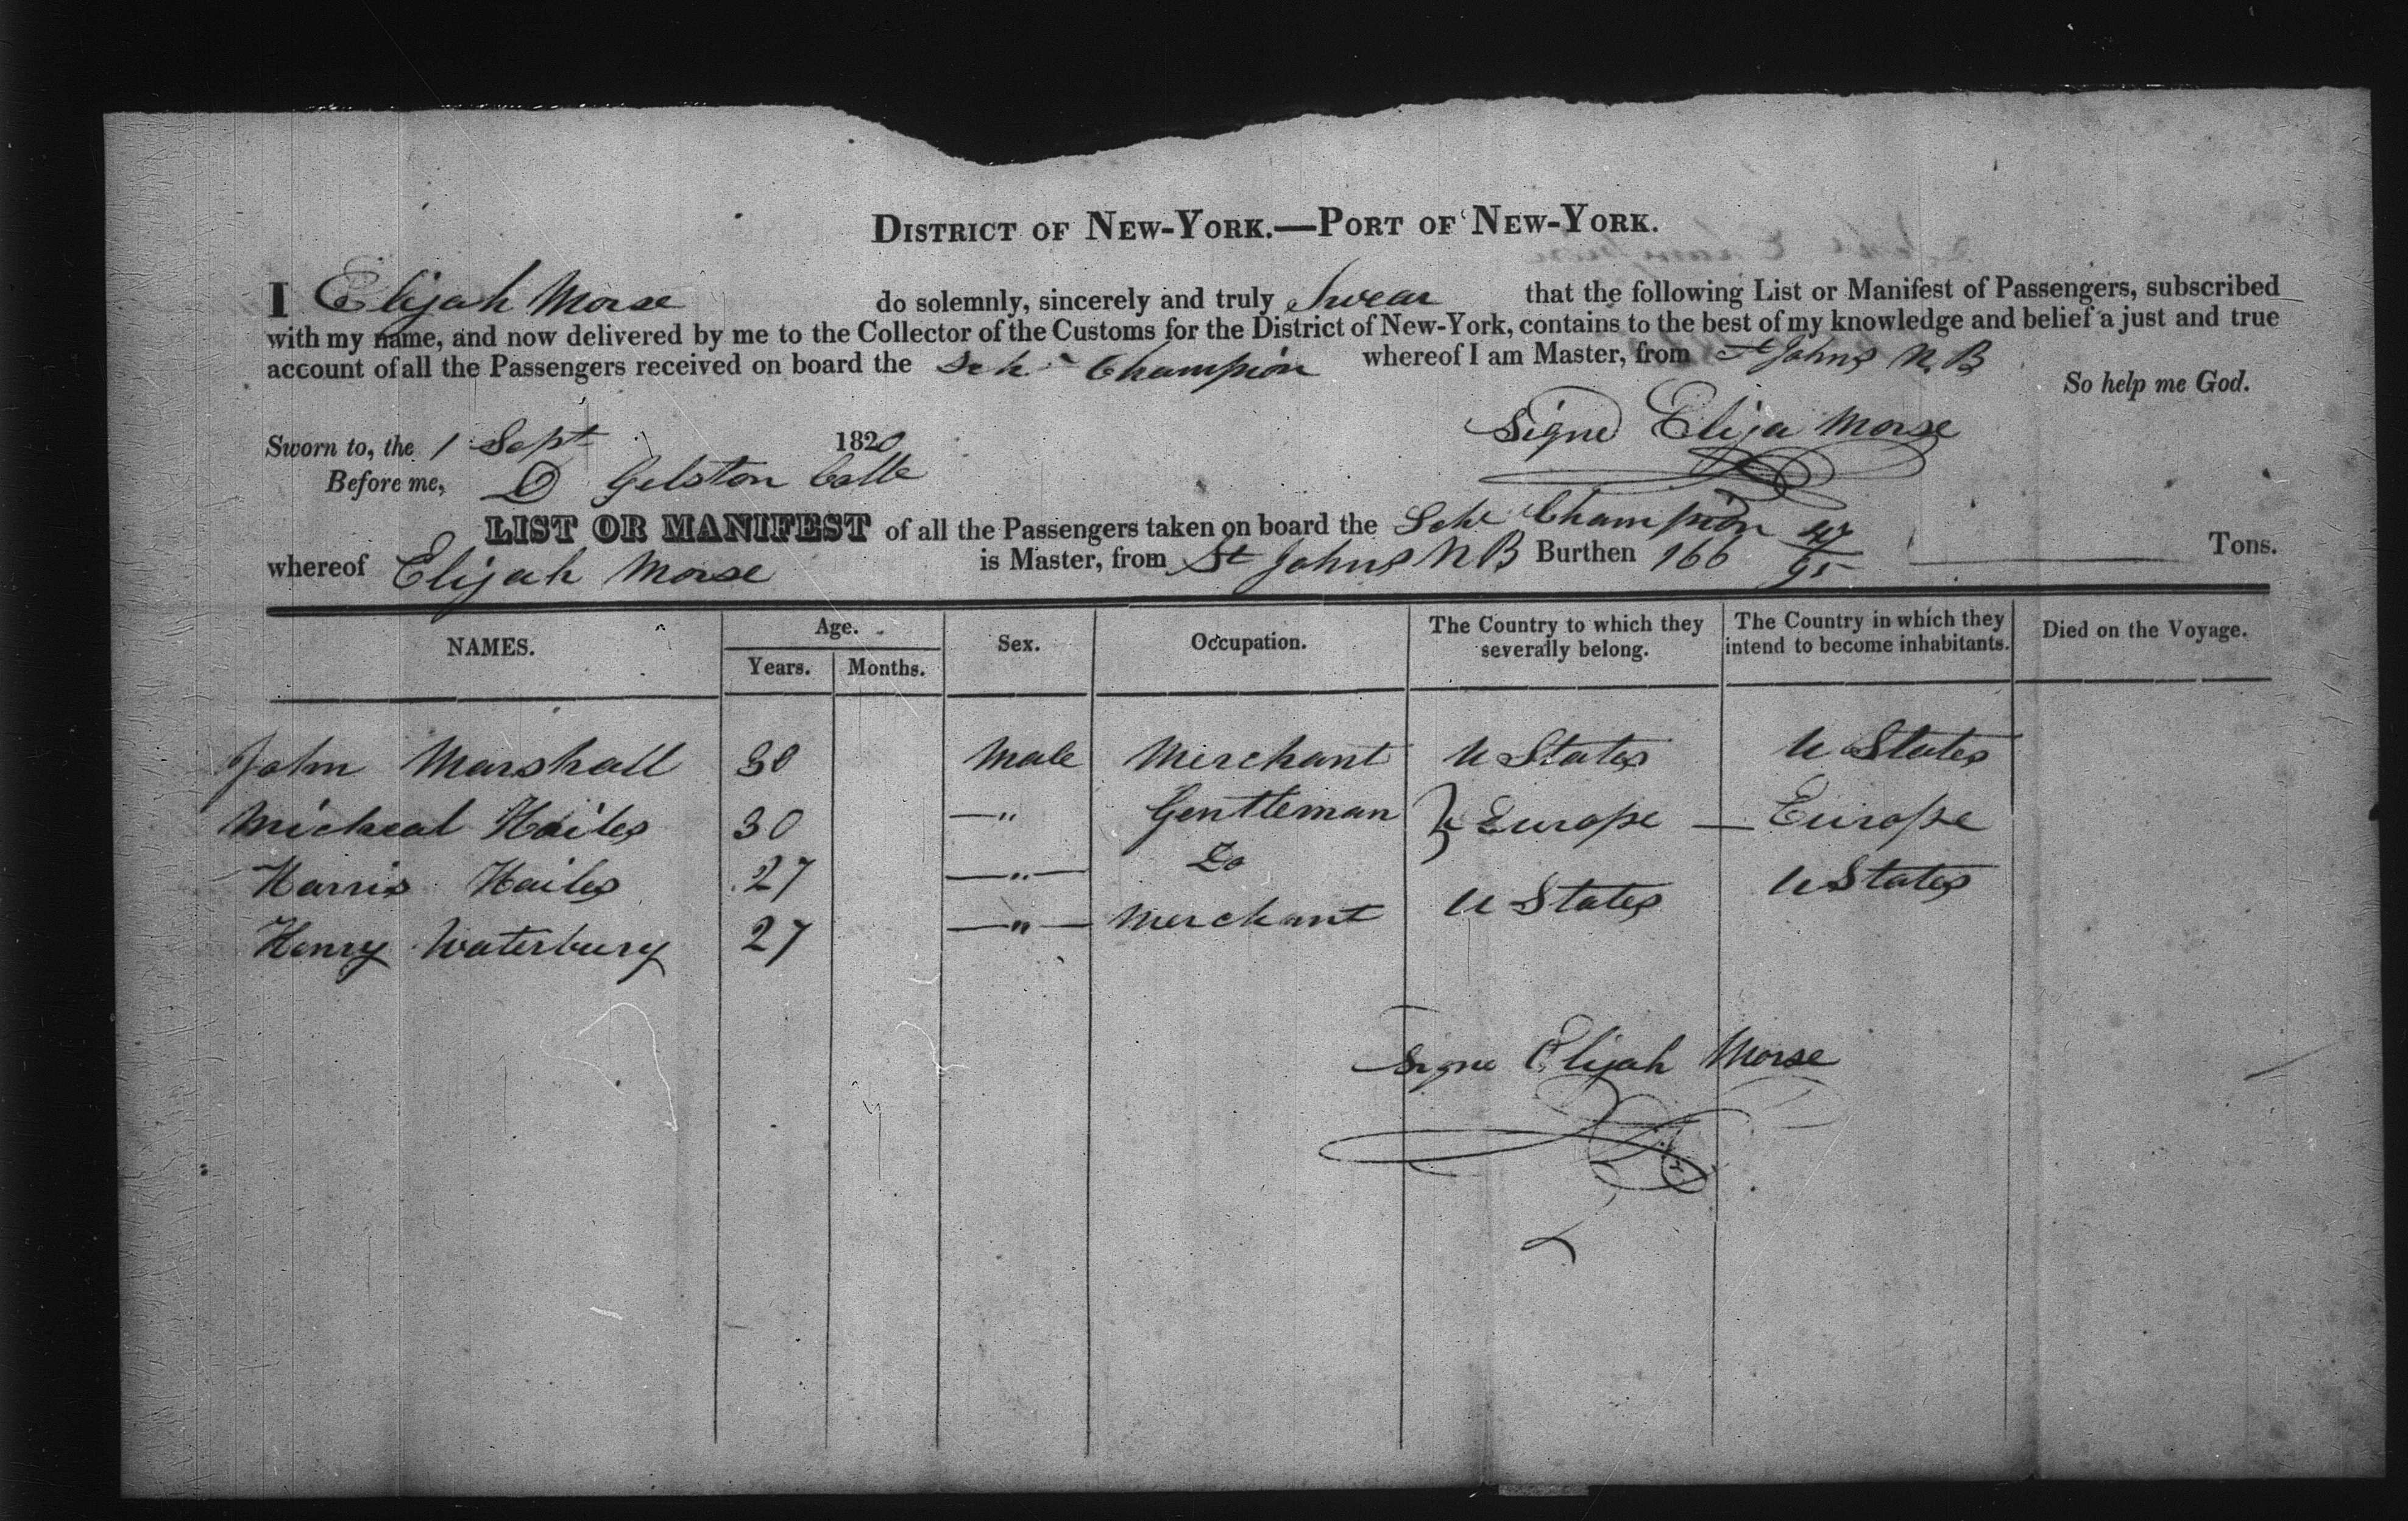 DISTRICT OF NEW-YORK.—PORT OF NEW-YORK.
I Elijah Morse do solemnly, sincerely and truly Swear that the following List or Manifest of Passengers, subscribed
with my name, and now delivered by me to the Collector of the Customs for the District of New-York, contains to the best of my knowledge and belief a just and true
account of all the Passengers received on board the Sch Champion whereof I am Master, from St Johns N.B
So help me God.
Signd Elija Morse
Sworn to, the 1 Sept 1820
Before me, D Gelston Colle
LIST OR MANIFEST of all the Passengers taken on board the Sch Champion
whereof Elijah Morse is Master, from St Johns NB Burthen 166 47/95 Tons.
NAMES. Age. Sex. Occupation. The Country to which they severally belong. The Country in which they intend to become inhabitants. Died on the Voyage.
Years. Months.
John Marshall 30 Male Merchant U States U States
Micheal Hailes 30 —"— Gentleman } Europe — Europe
Harris Hailes 27 —"— Do
Henry Waterbury 27 —"— Merchant U States U States
Signd Elijah Morse